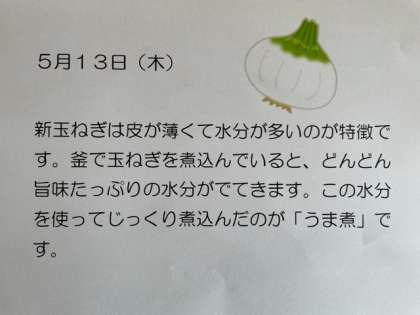 ５月１３日（木）
新玉ねぎは皮が薄くて水分が多いのが特徴で
す。釜で玉ねぎを煮込んでいると、どんどん
旨味たっぷりの水分がでてきます。この水分
を使ってじっくり煮込んだのが「うま煮」で
す。